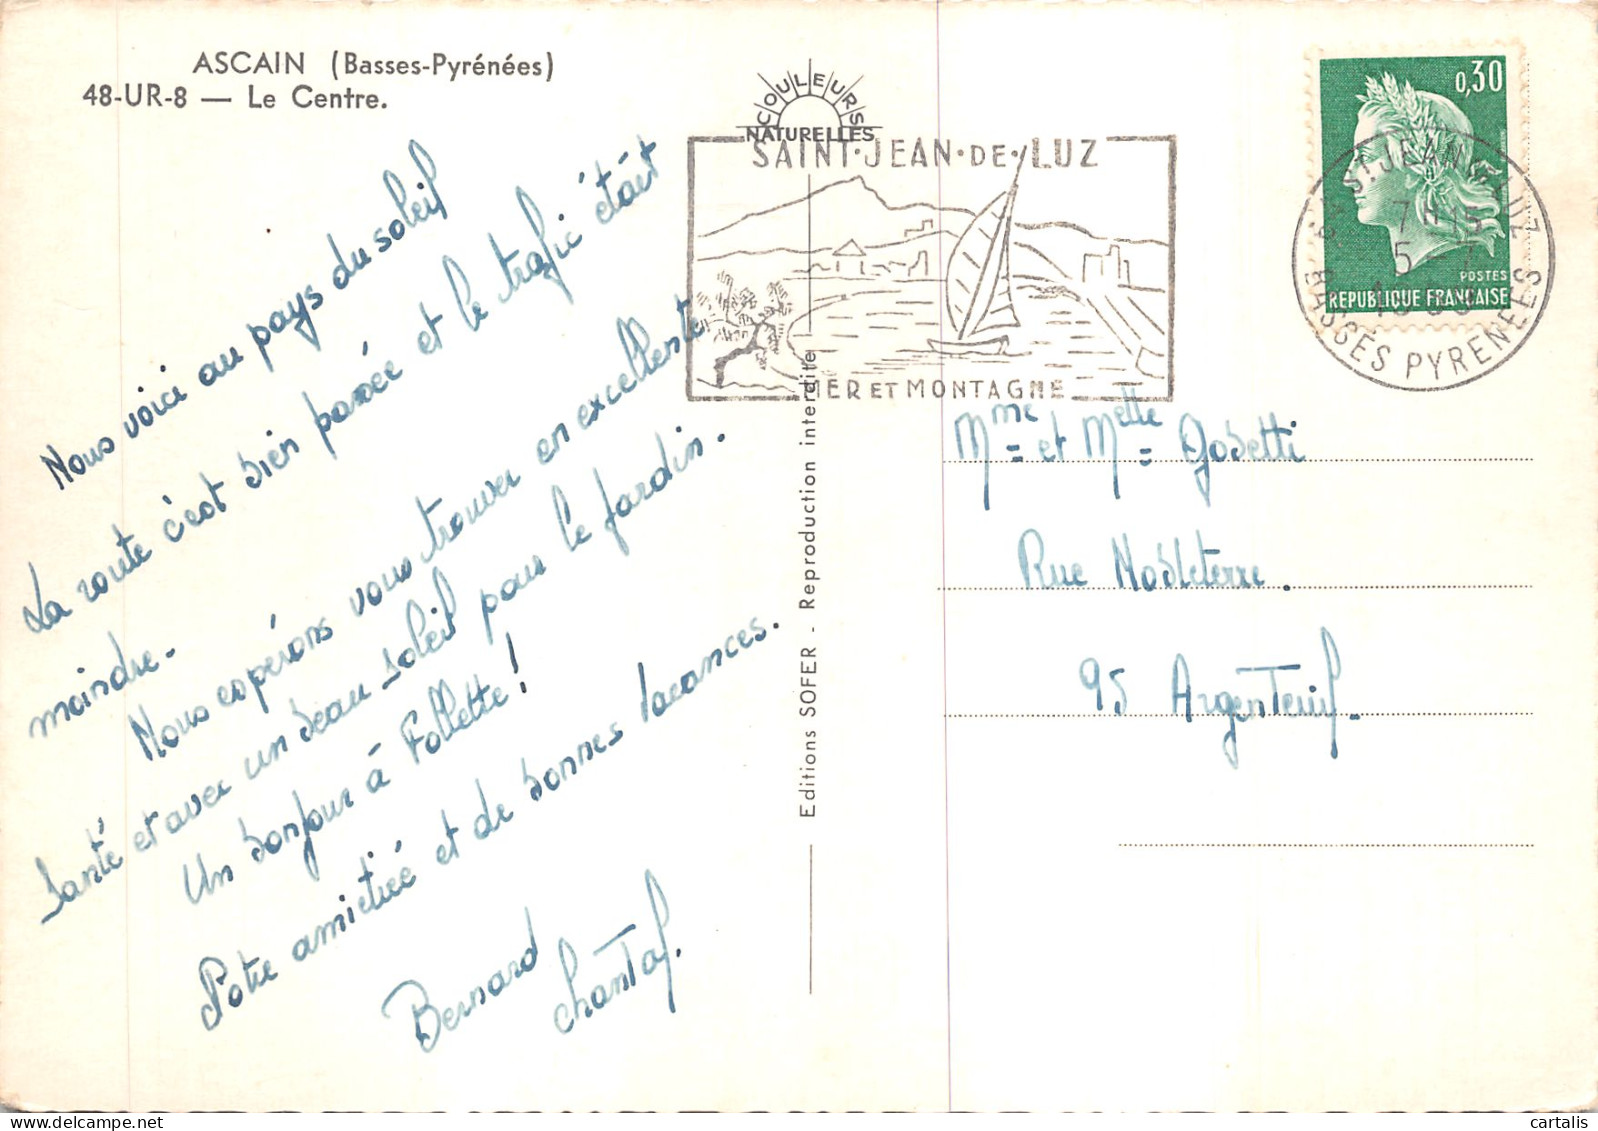 ASCAIN (Basses-Pyrénées)
48-UR-8 — Le Centre.
COULEURS
NATURELLES
SAINT·JEAN·DE·LUZ
MER ET MONTAGNE
0,30
POSTES
REPUBLIQUE FRANÇAISE
ST JEAN DE LUZ
7H15
5-7
BASSES PYRENEES
Nous voici au pays du soleil
La route c'est bien passée et le trafic était
moindre.
Nous espérons vous trouver en excellente
santé et avec un beau soleil pour le jardin.
Un bonjour à Follette !
Votre amitiée et de bonnes vacances.
Bernard
Chantal.
Editions SOFER - Reproduction interdite
Mme et Melle Gosetti
Rue
95 Argenteuil.
cartalis
delcampe.net